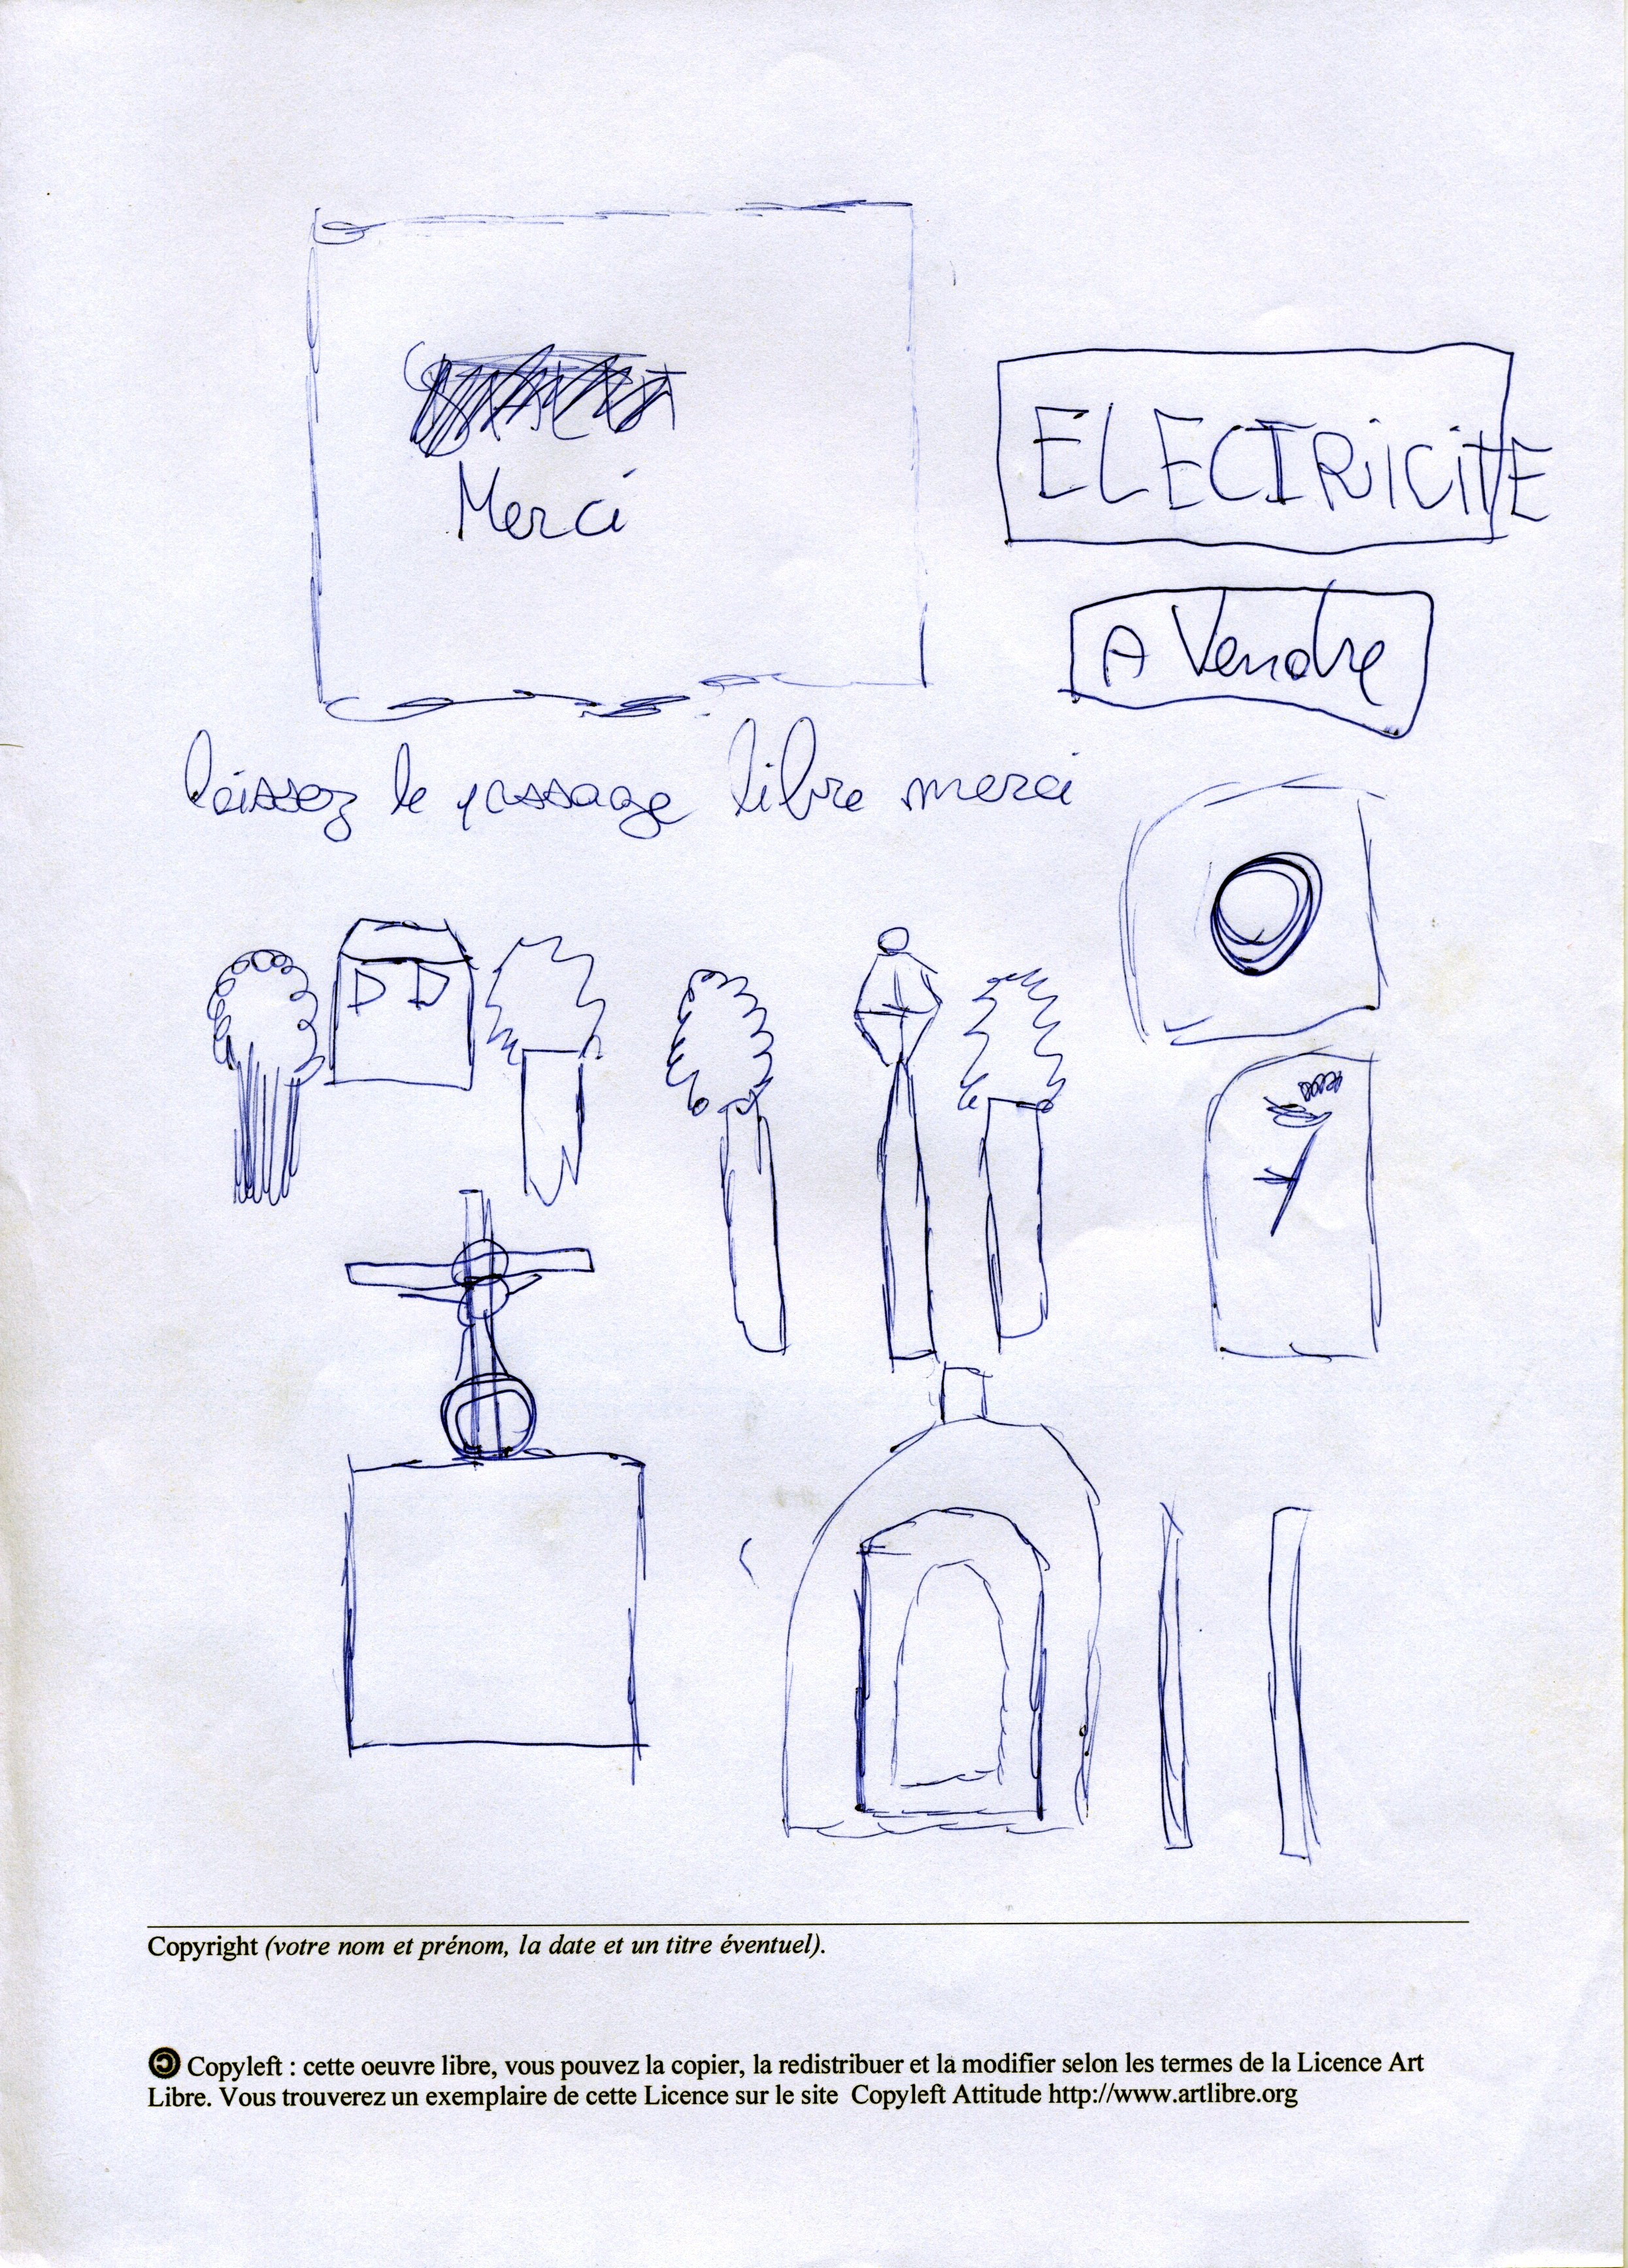 Merci
ELECTRICITE
A Vendre
laissez le passage libre merci
Copyright (votre nom et prénom, la date et un titre éventuel).
Copyleft : cette oeuvre libre, vous pouvez la copier, la redistribuer et la modifier selon les termes de la Licence Art
Libre. Vous trouverez un exemplaire de cette Licence sur le site Copyleft Attitude http://www.artlibre.org